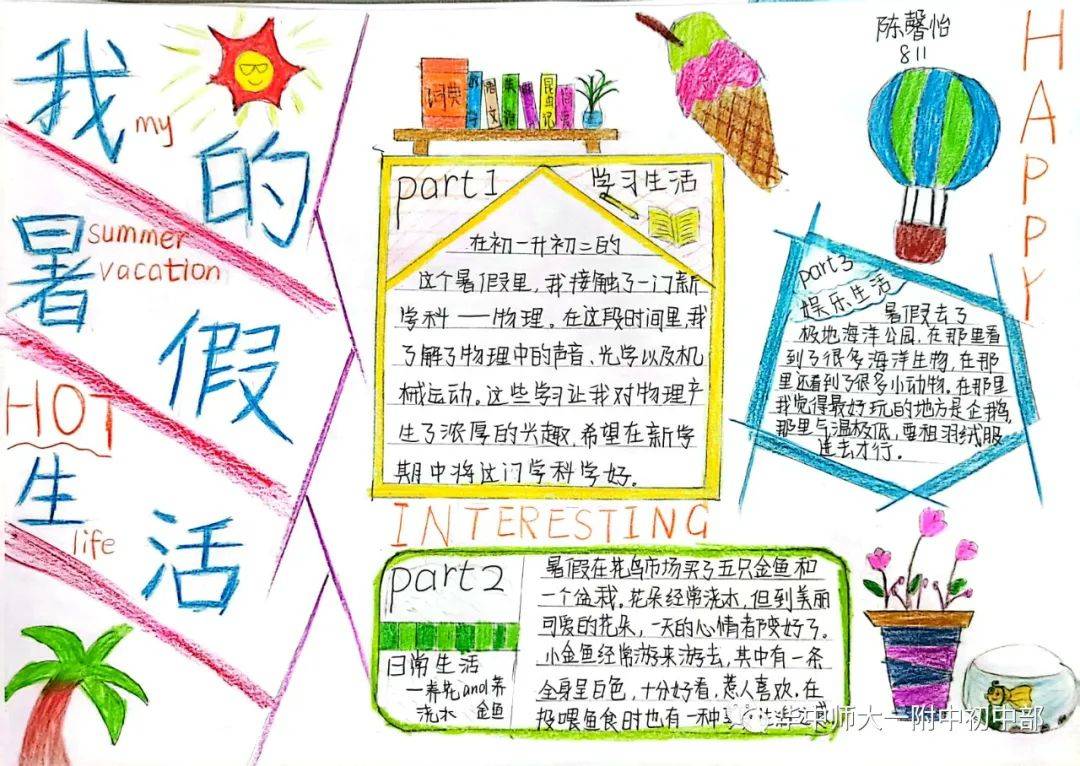 我
my
的
暑
summer
vacation
假
HOT
生
life
活
词典
语文
昆虫记
陈馨怡
811
HAPPY
part1
学习生活
在初一升初二的
这个暑假里,我接触了一门新
学科——物理。在这段时间里,我
了解了物理中的声音、光学以及机
械运动。这些学习让我对物理产
生了浓厚的兴趣,希望在新学
期中将这门学科学好。
INTERESTING
part2
日常生活
—养花and养
浇水 金鱼
暑假在花鸟市场买了五只金鱼和
一个盆栽。花朵经常浇水,但到美丽
可爱的花朵,一天的心情者陦变好了。
小金鱼经常游来游去,其中有一条
全身呈白色,十分好看,惹人喜欢。在
投喂鱼食时也有一种
part3
娱乐生活
暑假去了
极地海洋公园,在那里看
到了很多海洋生物,在那
里还看到了很多小动物,在那里
我觉得最好玩的地方是企鹅,
那里气温极低,要租羽绒服
进去才行。
华中师大一附中初中部